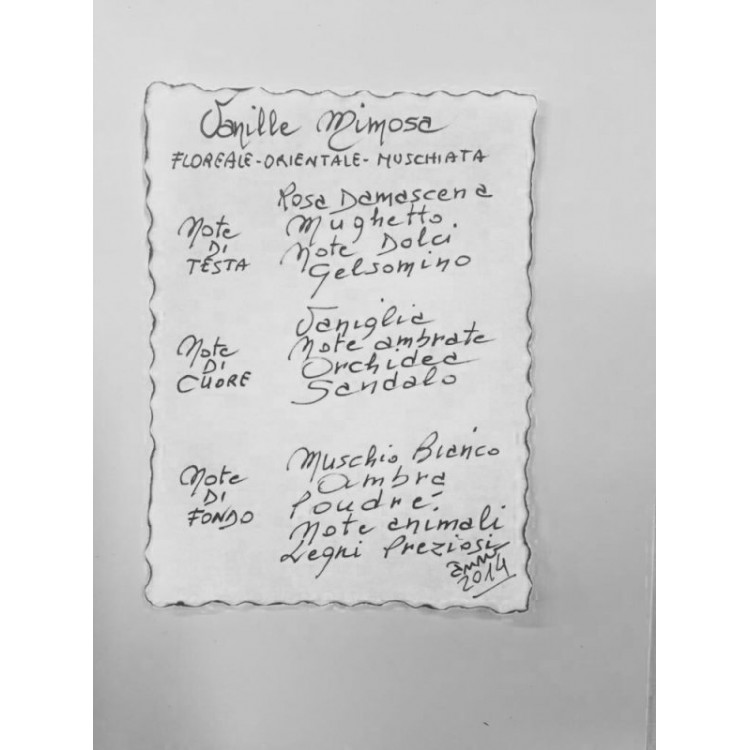 Vanille Mimosa
FLOREALE-ORIENTALE-MUSCHIATA
Note
DI
TESTA
Rosa Damascena
Mughetto
Note Dolci
Gelsomino
Note
DI
CUORE
Vaniglia
Note ambrate
Orchidea
Sandalo
Note
DI
FONDO
Muschio Bianco
Ambra
Poudré.
Note animali
Legni Preziosi
2014